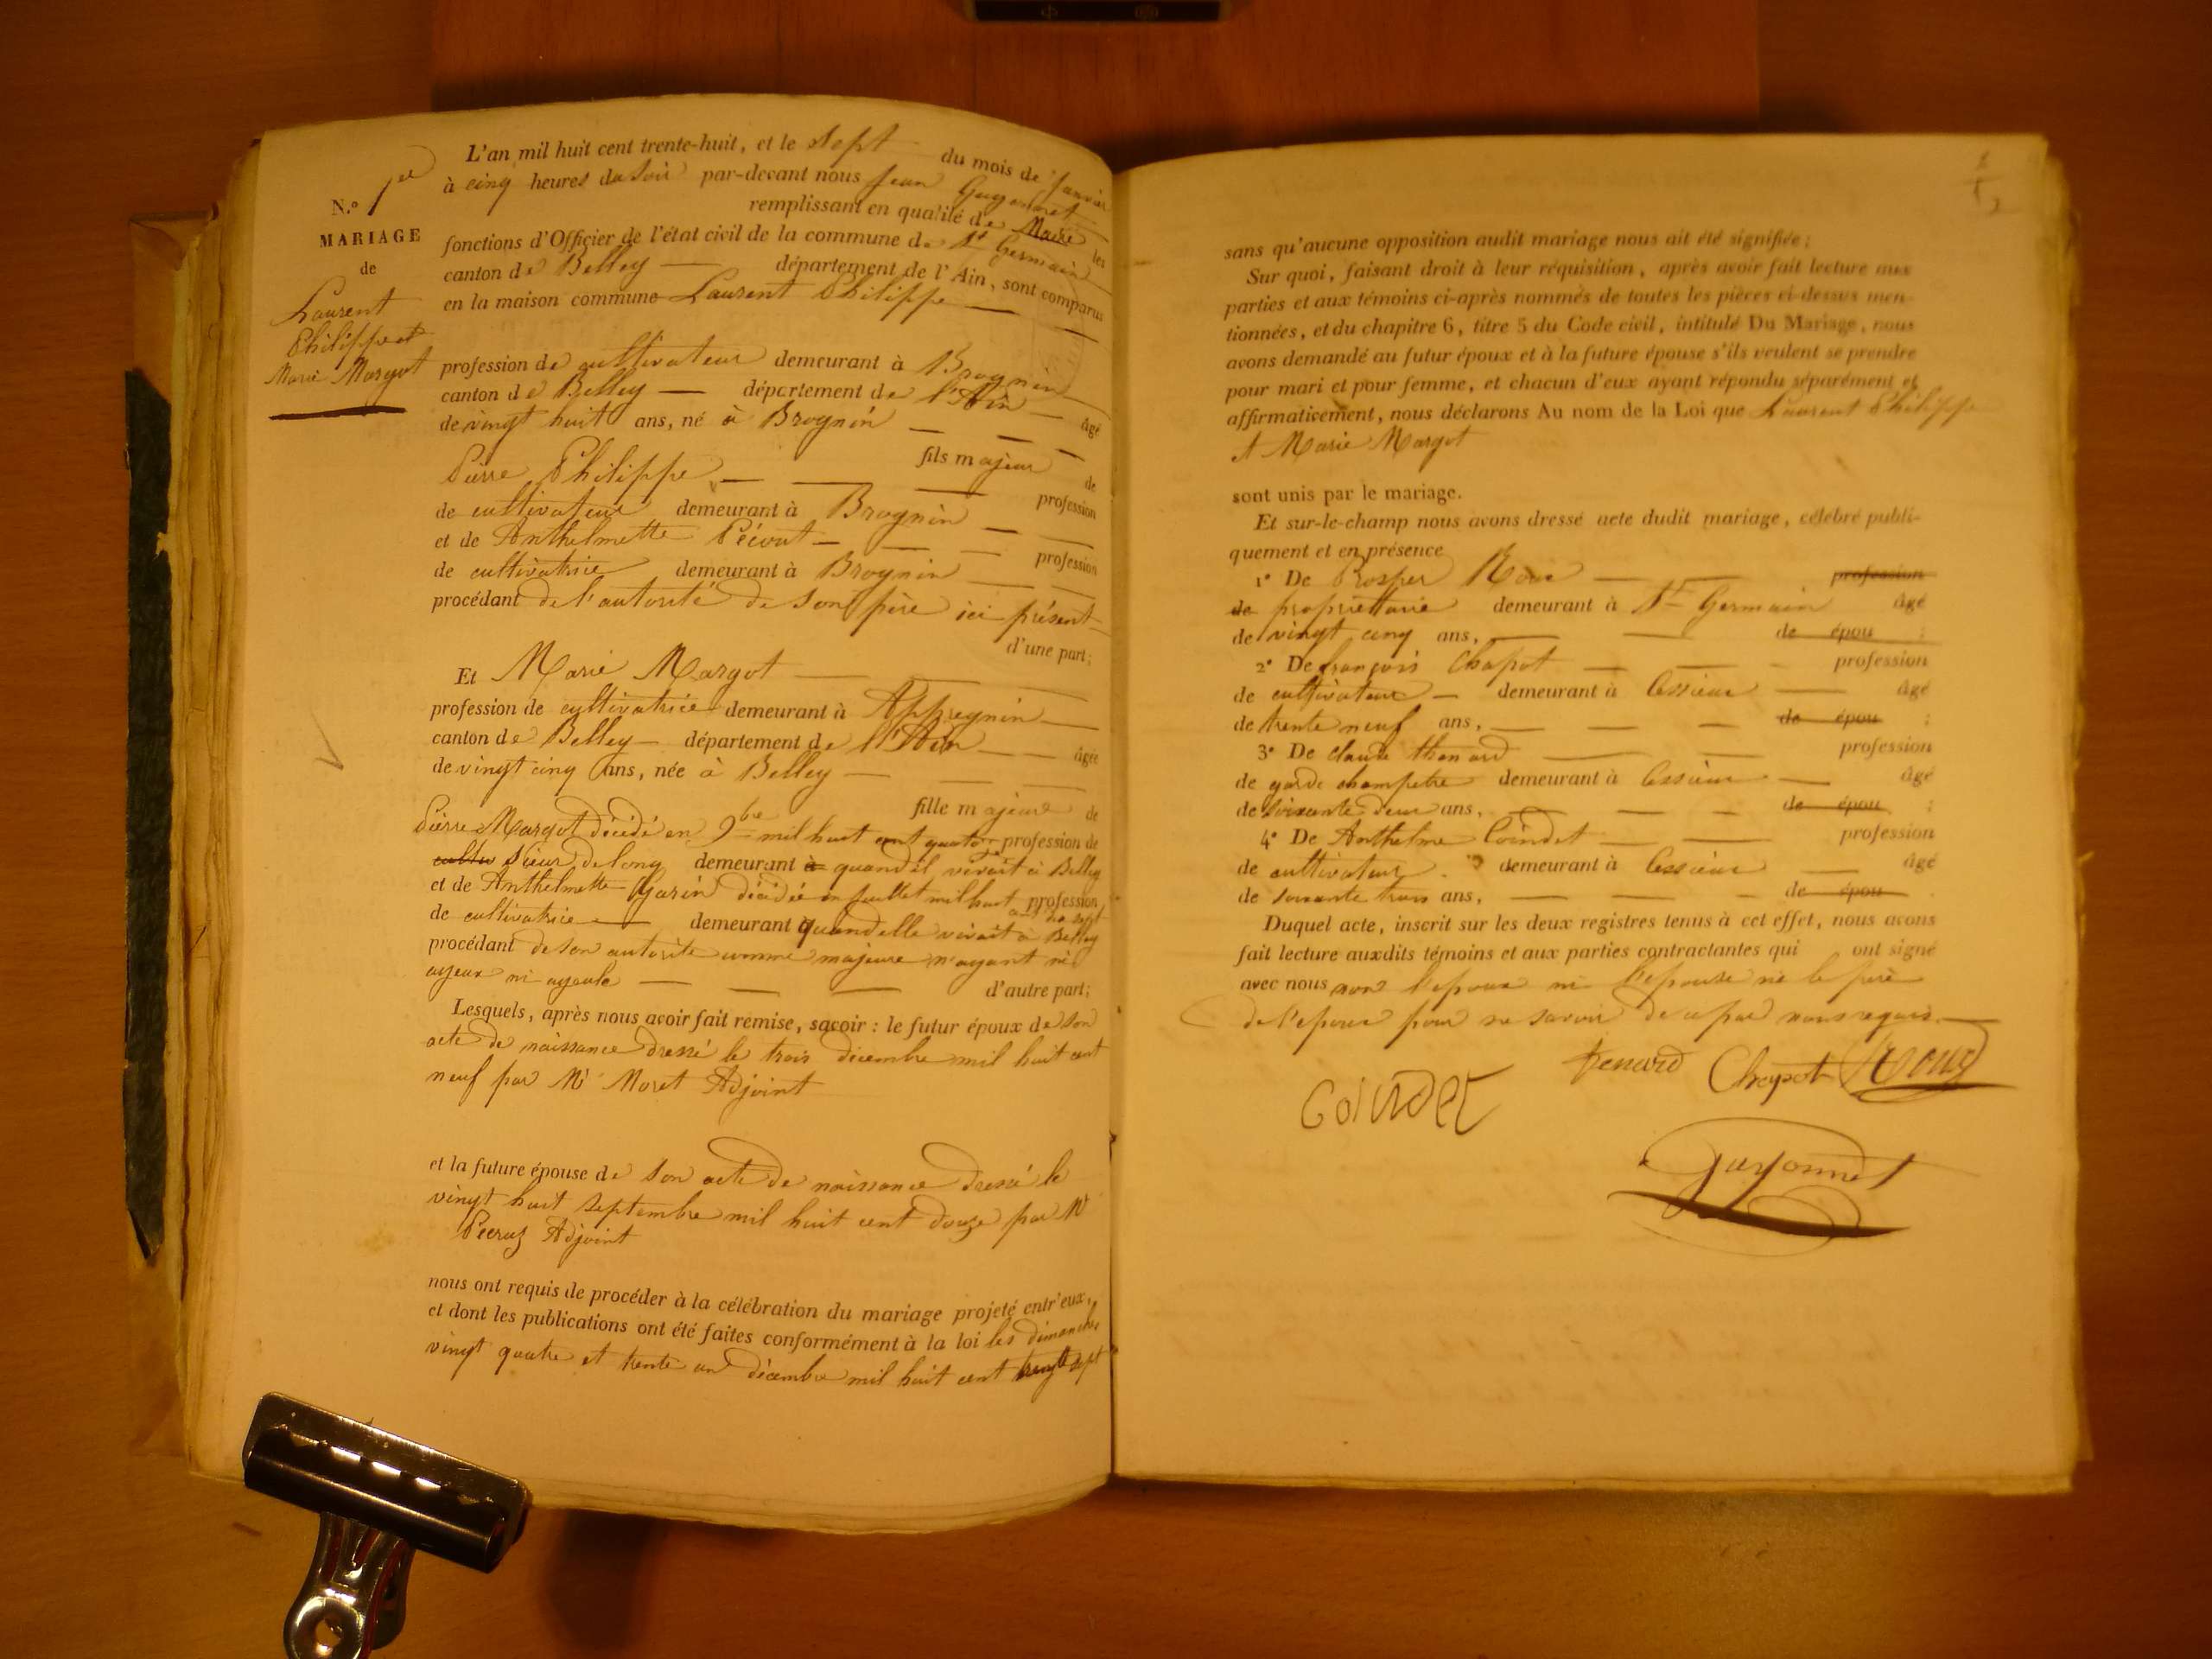 N.º 1er
MARIAGE
de
Laurent
Philippe et
Marie Margot
L'an mil huit cent trente-huit, et le sept du mois de janvier
à cinq heures du soir par-devant nous Jean Guyonnet
remplissant en qualité de Maire les
fonctions d'Officier de l'état civil de la commune de St Germain
canton de Belley département de l'Ain, sont comparus
en la maison commune Laurent Philippe
profession de cultivateur demeurant à Brognin
canton de Belley département de l'Ain âgé
de vingt huit ans, né à Brognin
fils majeur de
Pierre Philippe profession
de cultivateur demeurant à Brognin
et de Anthelmette Pécout profession
de cultivatrice demeurant à Brognin
procédant de l'autorité de son père ici présent
d'une part;
Et Marie Margot
profession de cultivatrice demeurant à Appregnin
canton de Belley département de l'Ain âgée
de vingt cinq ans, née à Belley
fille majeure de
Pierre Margot décédé en 9bre mil huit cent quatorze profession de
cultiv sieur de long demeurant à quand il vivait à Belley
et de Anthelmette Garin décédée en juillet mil huit cent dix sept profession
de cultivatrice demeurant quand elle vivait à Belley
procédant de son autorité comme majeure n'ayant ni
ayeux ni ayeule d'autre part;
Lesquels, après nous avoir fait remise, savoir : le futur époux de son
acte de naissance dressé le trois décembre mil huit cent
neuf par Mr Moret Adjoint
et la future épouse de son acte de naissance dressé le
vingt huit septembre mil huit cent douze par Mr
Adjoint
nous ont requis de procéder à la célébration du mariage projeté entr'eux,
et dont les publications ont été faites conformément à la loi les dimanches
vingt quatre et trente un décembre mil huit cent trente sept
sans qu'aucune opposition audit mariage nous ait été signifiée;
Sur quoi, faisant droit à leur réquisition, après avoir fait lecture aux
parties et aux témoins ci-après nommés de toutes les pièces ci-dessus men-
tionnées, et du chapitre 6, titre 5 du Code civil, intitulé Du Mariage, nous
avons demandé au futur époux et à la future épouse s'ils veulent se prendre
pour mari et pour femme, et chacun d'eux ayant répondu séparément et
affirmativement, nous déclarons Au nom de la Loi que Laurent Philippe
et Marie Margot
sont unis par le mariage.
Et sur-le-champ nous avons dressé acte dudit mariage, célébré publi-
quement et en présence
1º De Prosper Roux profession
de propriettaire demeurant à St Germain âgé
de vingt cinq ans, de épou ;
2º De françois Chapot profession
de cultivateur demeurant à Cessieux âgé
de trente neuf ans, de épou ;
3º De claude thenard profession
de garde champetre demeurant à Cessieux âgé
de soixante deux ans, de épou ;
4º De Anthelme Coindet profession
de cultivateur demeurant à Cessieux âgé
de soixante trois ans, de épou .
Duquel acte, inscrit sur les deux registres tenus à cet effet, nous avons
fait lecture auxdits témoins et aux parties contractantes qui ont signé
avec nous non l'epoux ni l'epouse ni le père
de l'epoux pour ne savoir de ce par nous requis.
tenard Chapot Roux
Coindet
Guyonnet